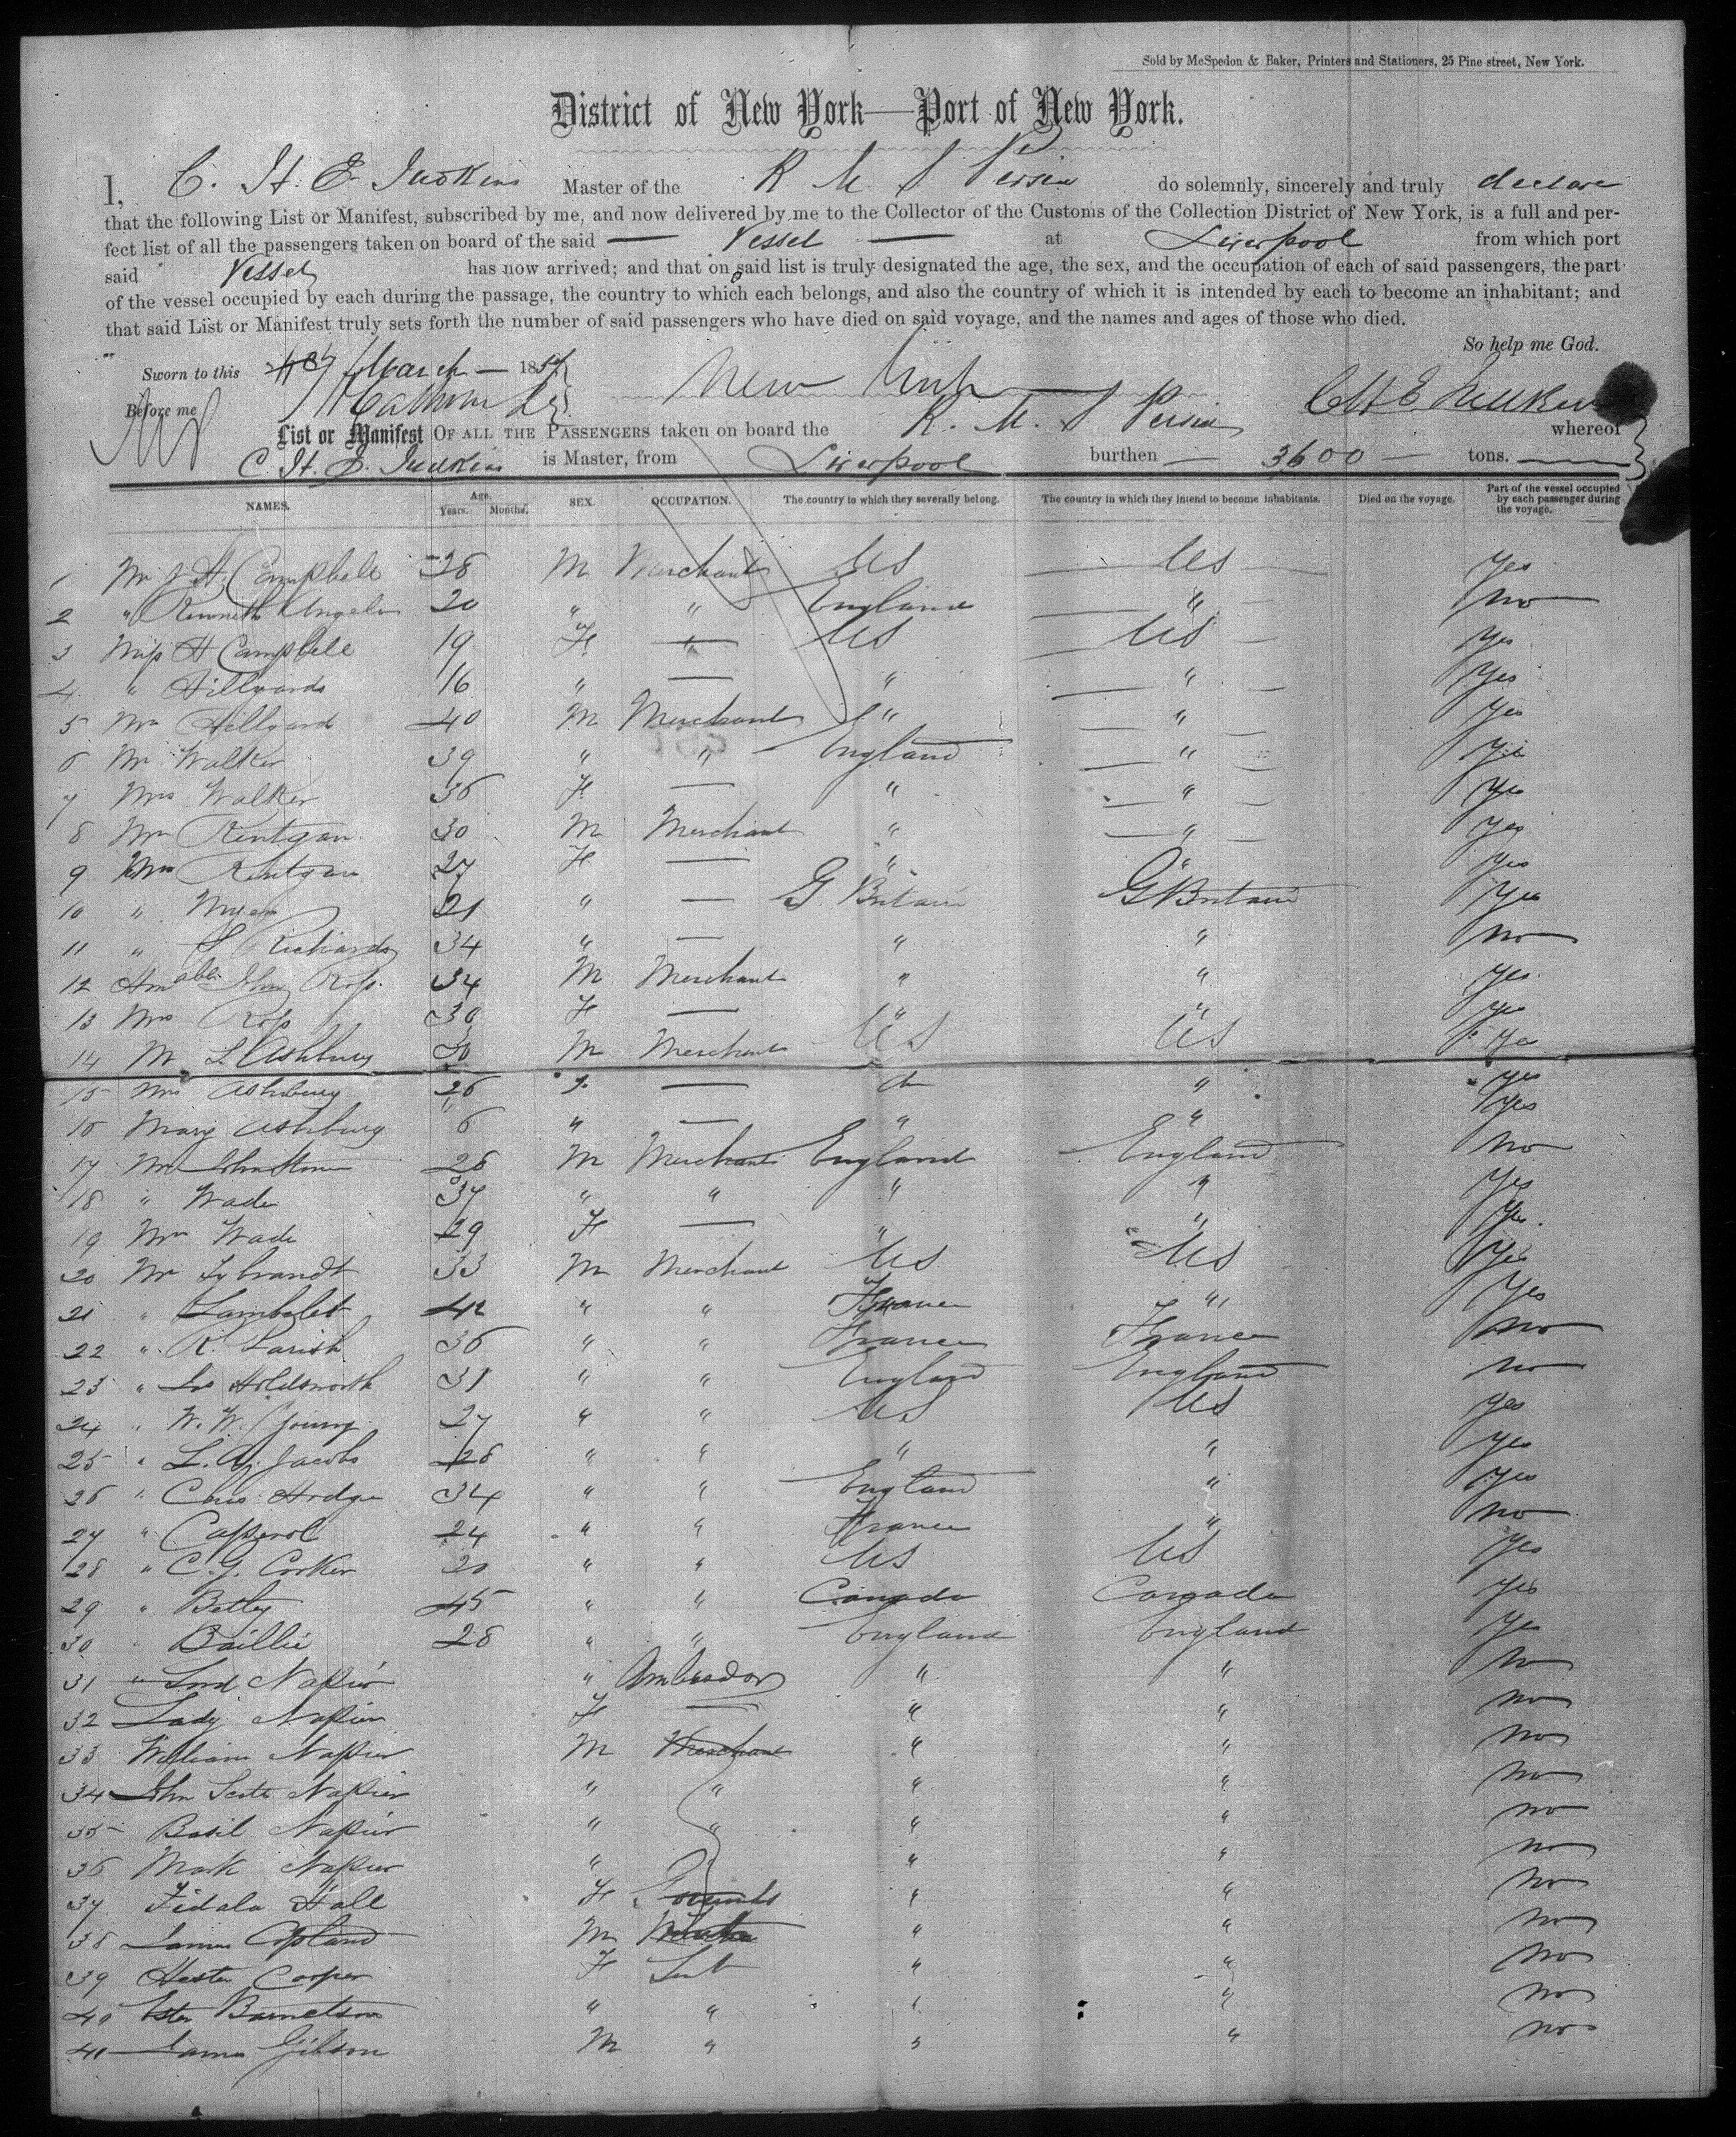 Sold by McSpedon & Baker, Printers and Stationers, 25 Pine street, New York.
District of New York—Port of New York.
I, C. H. E. Judkins Master of the R. M. S Persia do solemnly, sincerely and truly declare
that the following List or Manifest, subscribed by me, and now delivered by me to the Collector of the Customs of the Collection District of New York, is a full and per-
fect list of all the passengers taken on board of the said — Vessel — at Liverpool from which port
said Vessel has now arrived; and that on said list is truly designated the age, the sex, and the occupation of each of said passengers, the part
of the vessel occupied by each during the passage, the country to which each belongs, and also the country of which it is intended by each to become an inhabitant; and
that said List or Manifest truly sets forth the number of said passengers who have died on said voyage, and the names and ages of those who died.
So help me God.
Sworn to this March — 1857
Before me New York C H E Judkins
List or Manifest OF ALL THE PASSENGERS taken on board the R. M. S Persia whereof
C. H. E. Judkins is Master, from Liverpool burthen — 3600 — tons.
NAMES. Age. Years. Months. SEX. OCCUPATION. The country to which they severally belong. The country in which they intend to become inhabitants. Died on the voyage. Part of the vessel occupied by each passenger during the voyage.
1 Mr J H. Campbell 28 M Merchant US — US — Yes
2 " Kenneth 20 " " England — " — no
3 Miss H Campbell 19 F " US — US — Yes
4 " Hillyards 16 " — " — " — Yes
5 Mr Hillyard 40 M Merchant " — " — Yes
6 Mr Walker 39 " " England — " — Yes
7 Mrs Walker 36 F — " — " — Yes
8 Mr Rintgan 30 M Merchant " — " — Yes
9 Mrs Rintgan 27 F — " " Yes
10 " Myers 21 " — G. Britain G Britain Yes
11 " S Richards 34 " — " " no
12 Honable John Ross 34 M Merchant " " Yes
13 Mrs Ross 30 F — " " Yes
14 Mr L Ashbury M Merchant US US Yes
15 Mrs Ashbury 26 F — do " Yes
16 Mary Ashbury 6 " — " " Yes
17 Mr Johnstone 26 M Merchant England England no
18 " Wade 37 " " " " Yes
19 Mrs Wade 29 F — " " Yes
20 Mr Sybrandt 33 M Merchant US US Yes
21 " Lambalet 42 " " France " Yes
22 " R. Larish 36 " " France France no
23 " Jos Holdsworth 31 " " England England no
24 " W. W. Young 27 " " US US Yes
25 " L. A. Jacobs 28 " " " " Yes
26 " Chas Hodge 34 " " England " Yes
27 " Casperol 24 " " France " no
28 " C. G. Corker 20 " " US US Yes
29 " Betty 45 " " Canada Canada Yes
30 " Baillie 28 " " England England Yes
31 " Lord Napier " Ambasdor " " no
32 Lady Napier F — " " no
33 William Napier M Merchant " " no
34 John Scott Napier " " " " no
35 Basil Napier " " " " no
36 Mark Napier " " " " no
37 Fidala Hall F " " no
38 James Copland M " " no
39 Hester Cooper F Sevt " " no
40 Ester Barnetson " " " " no
41 James Gibson M " " " no